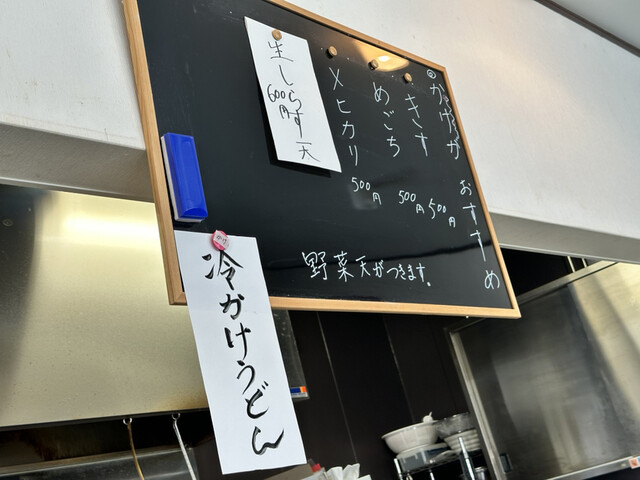 かけが おすすめ
きす 500円
めごち 500円
メヒカリ 500円
生しらす天
600円
野菜天がつきます。
冷かけうどん